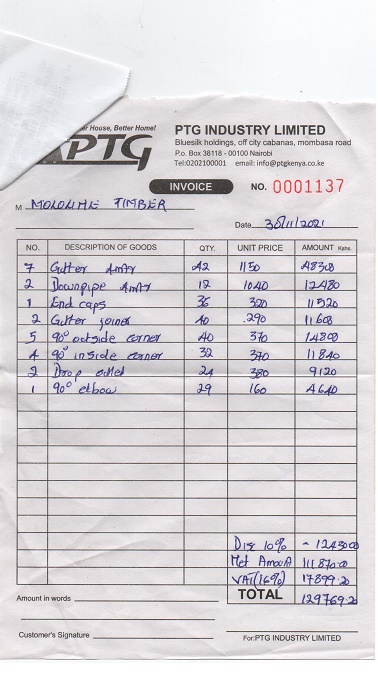 er House, Better Home!
PTG
PTG INDUSTRY LIMITED
Bluesilk holdings, off city cabanas, mombasa road
P.o. Box 38118 - 00100 Nairobi
Tel:0202100001 email: info@ptgkenya.co.ke
INVOICE NO. 0001137
M MOLOLINE TIMBER
Date 30/11/2021
NO. DESCRIPTION OF GOODS QTY. UNIT PRICE AMOUNT Kshs.
7 Gutter 4mtr 42 1150 48300
2 Downpipe 4mtr 12 1040 12480
1 End caps 36 320 11520
2 Gutter joiner 40 290 11600
5 90° outside corner 40 370 14800
4 90° inside corner 32 370 11840
2 Drop outlet 24 380 9120
1 90° elbow 29 160 4640
Dis 10% - 12430.00
Net Amount 111870.00
VAT(16%) 17899.20
TOTAL 129769.20
Amount in words
Customer's Signature
For:PTG INDUSTRY LIMITED